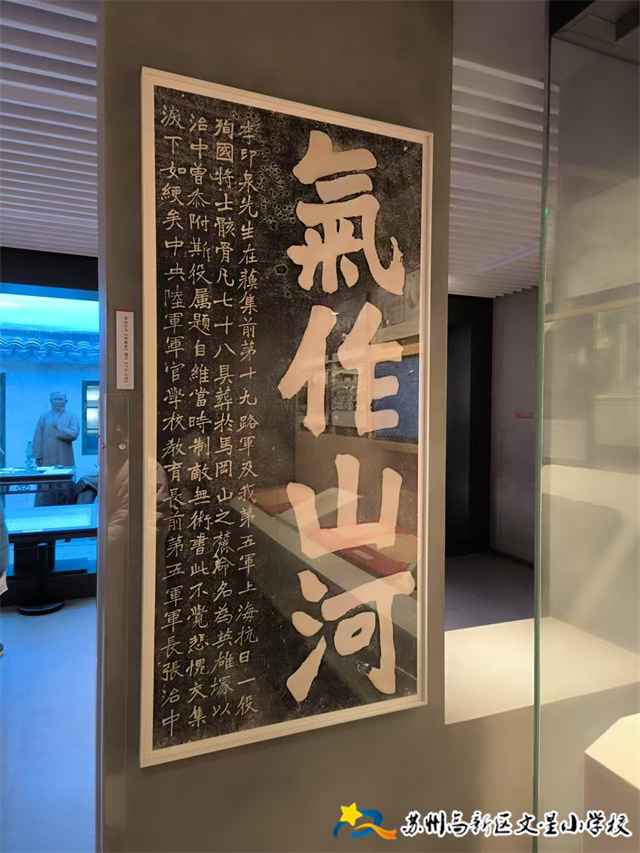 氣作山河
李印泉先生在蘇集前第十九路軍及我第五軍上海抗日一役
殉國將士骸骨凡七十八具葬於馬岡山之麓命名為英雄塚以
治中曾忝附斯役屬題自維當時制敵無術書此不覺悲愧交集
淚下如綆矣中央陸軍軍官學校教育長前第五軍軍長張治中
苏州高新区文星小学校